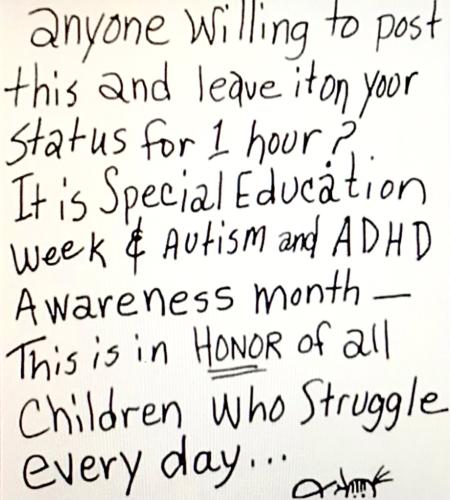 anyone willing to post
this and leave it on your
status for 1 hour?
It is Special Education
week & Autism and ADHD
Awareness month —
This is in HONOR of all
Children who Struggle
every day...